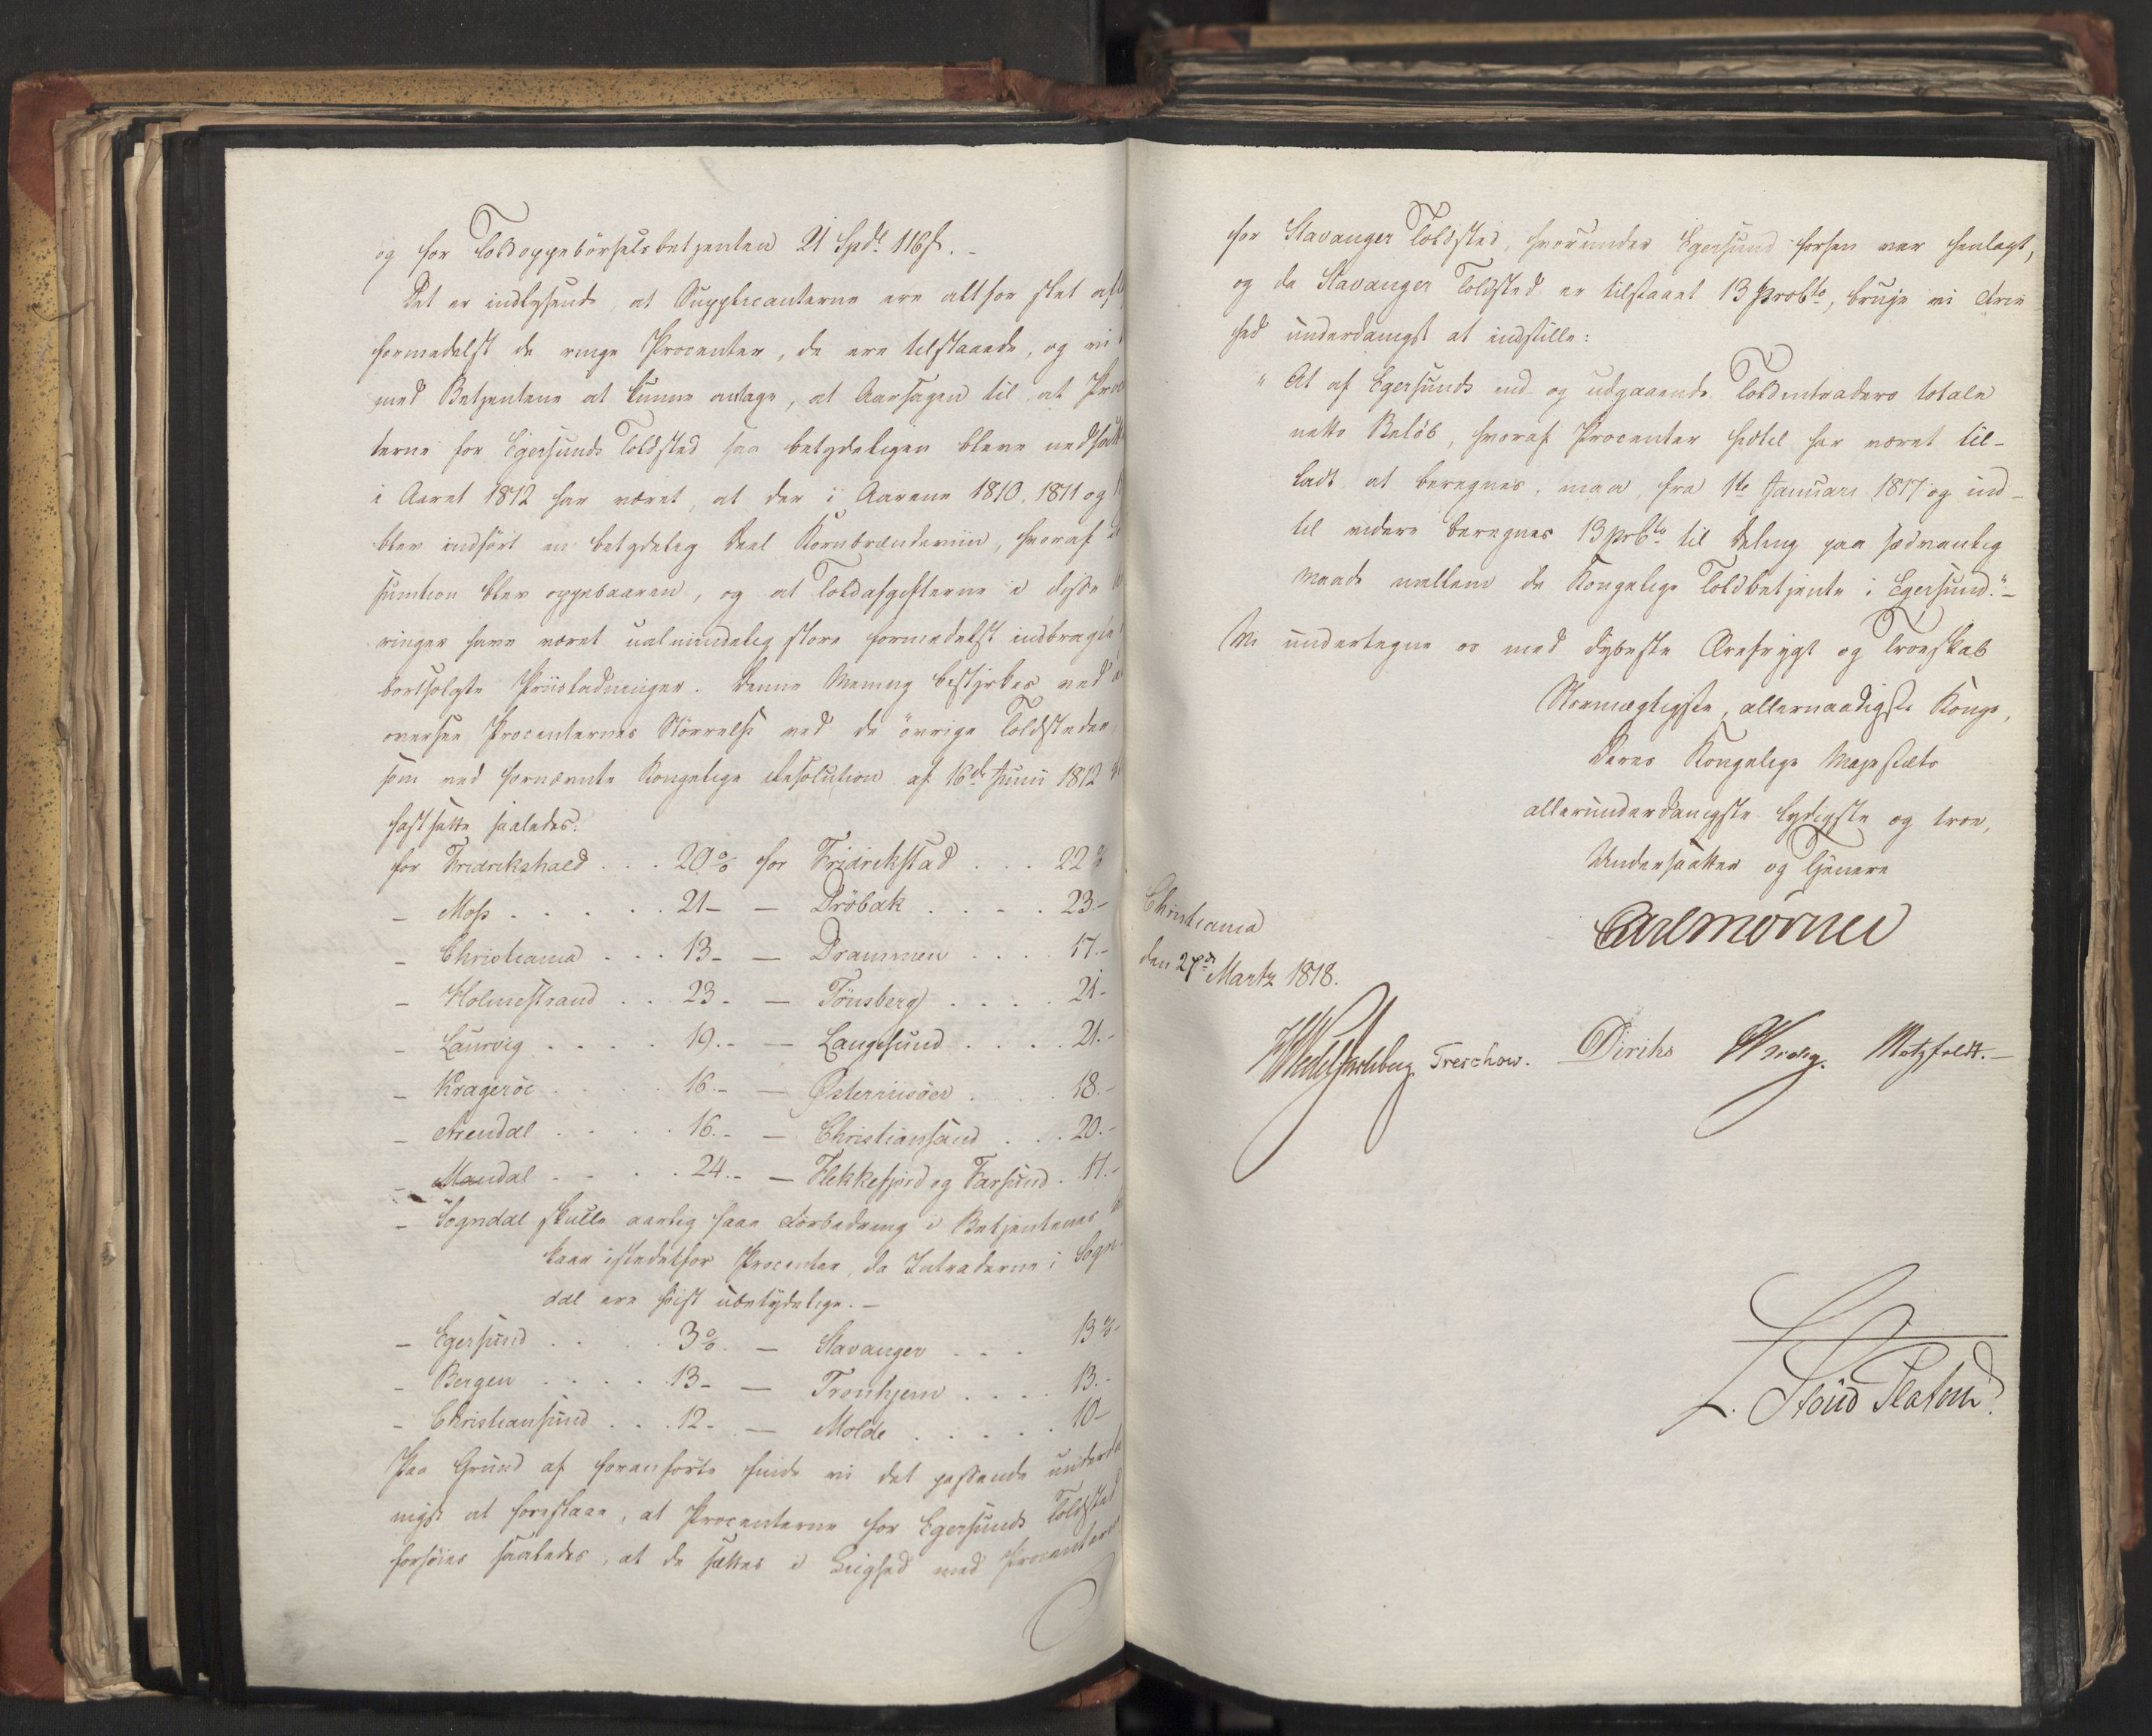 og for Toldoppebørselsbetjenten 21 Spd. 118 s. -
Det er indlysende at Supplicanterne ere altfor slet
formedelst de ringe Procenter, de ere tilstaaede, og vi
med Betjentene at kunne antage, at Aarsagen til at
terne for Egersunds Toldsted saa betydeligen bleve nedsatte
i Aaret 1812 har været, at der i Aarene 1810. 1811 og
blev indført en betydelig Deel Kornbrændeviin, hvoraf
sumtion blev oppebaaren, og at Toldafgifterne i disse
ringer have været ualmindelig store formedelst indbragte
bortsolgte Priisladninger. Denne Mening bestyrkes ved
oversee Procenternes Størrelse ved de øvrige Toldsteder,
som ved fornævnte Kongelige Resolution af 16de Junii 1812
fastsatte saaledes:
for Fredrikshald . . . 20 % for Fridrikstad . . . 22 %
- Moss . . . . . 21 - - Dröbak . . . . 23.-
- Christiania . . . 13 - - Drammen . . . . 17.-
- Holmestrand . . 23 - - Tönsberg . . . . 21-
- Laurvig . . . . 19.- - Langesund . . . . 21.-
- Krageröe . . . . 16.- - Østerriisöer . . . . 18.-
- Arendal . . . . 16.- - Christiansand . . . 20.-
- Mandal . . . . 24.- - Flekkefjord og Farsund . 17.-
- Sogndal skulle aarlig faae Forbedring i Betjentenes
kaar istedetfor Procenter, da Intraderne i Sogn-
dal ere høist ubetydelige. -
- Egersund . . . . 3 %. - Stavanger . . . 13 %-
- Bergen . . . . 13 - - Tronhjem . . . . 13.-
- Christiansund . . . 12 - - Molde . . . . . 10-
Paa Grund af foranførte finde vi det passende underda
nigst at foreslaae, at Procenterne for Egersunds Toldsted
forhøies saaledes, at de sættes i Liighed med Procenterne
for Stavanger Toldsted, hvorunder Egersund forhen var henlagt,
og da Stavanger Toldsted er tilstaaet 13 ProCto, bruge vi Frie
hed underdanigst at indstille:
" At af Egersunds ind- og udgaaende Toldintraders totale
netto Beløb, hvoraf Procenter hidtil har været til-
ladt at beregnes, maa fra 1te Januari 1817 og ind-
til videre beregnes 13 prCto til Deling paa sædvanlig
Maade mellem de Kongelige Toldbetjente i Egersund." -
Vi undertegne os med dybeste Ærefrygt og Troeskab
Stormægtigste, allernaadigste Konge,
Deres Kongelige Majestæts
allerunderdanigste lydigste og troe,
Undersaatter og Tjenere
Christiania
den 27de Martz 1818.
Carl Mörner
HWedelJarlsberg Treschow. Diriks Krieg. Motzfeldt. -
L. Stoud Platou